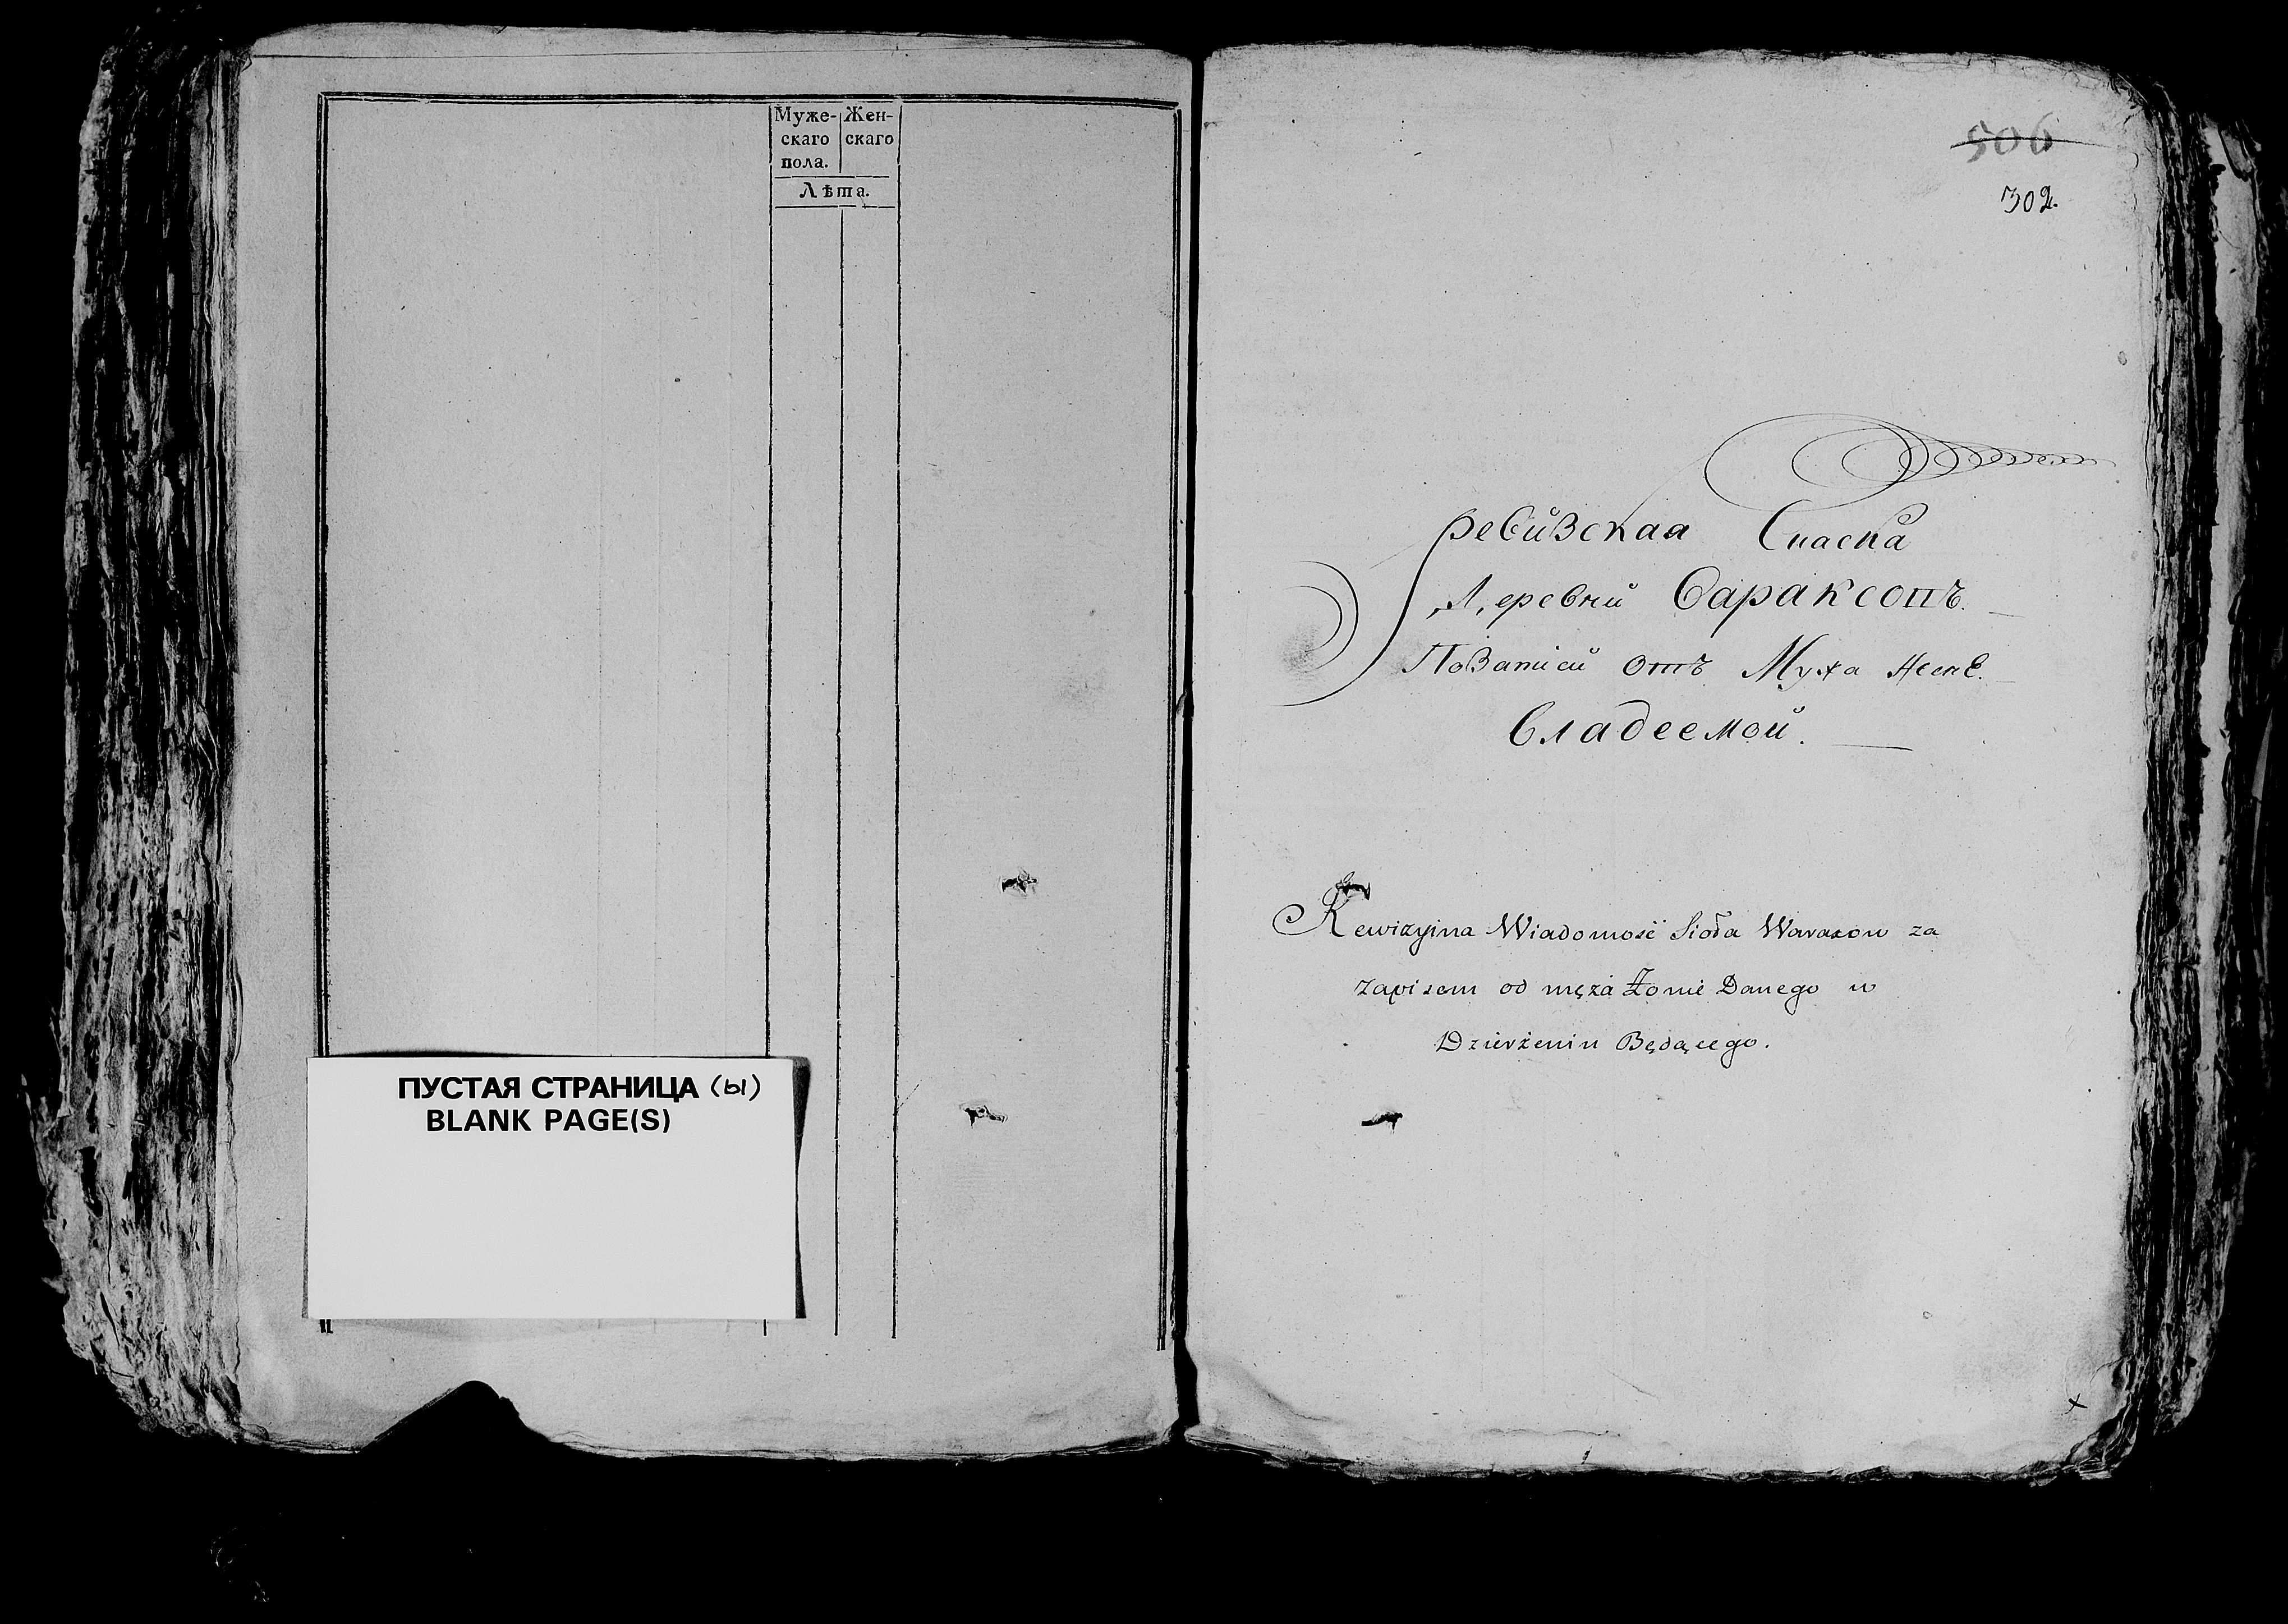 Муже- Жен-
скаго скаго
пола.
Лѣта.
ПУСТАЯ СТРАНИЦА (ы)
BLANK PAGE(S)
506
302.
Ревизская Скаска
Деревни
Позаписи отъ Мужа Жене.
владеемой.
Rewizyina Wiadomość Sioła za
zapisem od męża Żonie Danego w
Dzierżeniu Będącego.